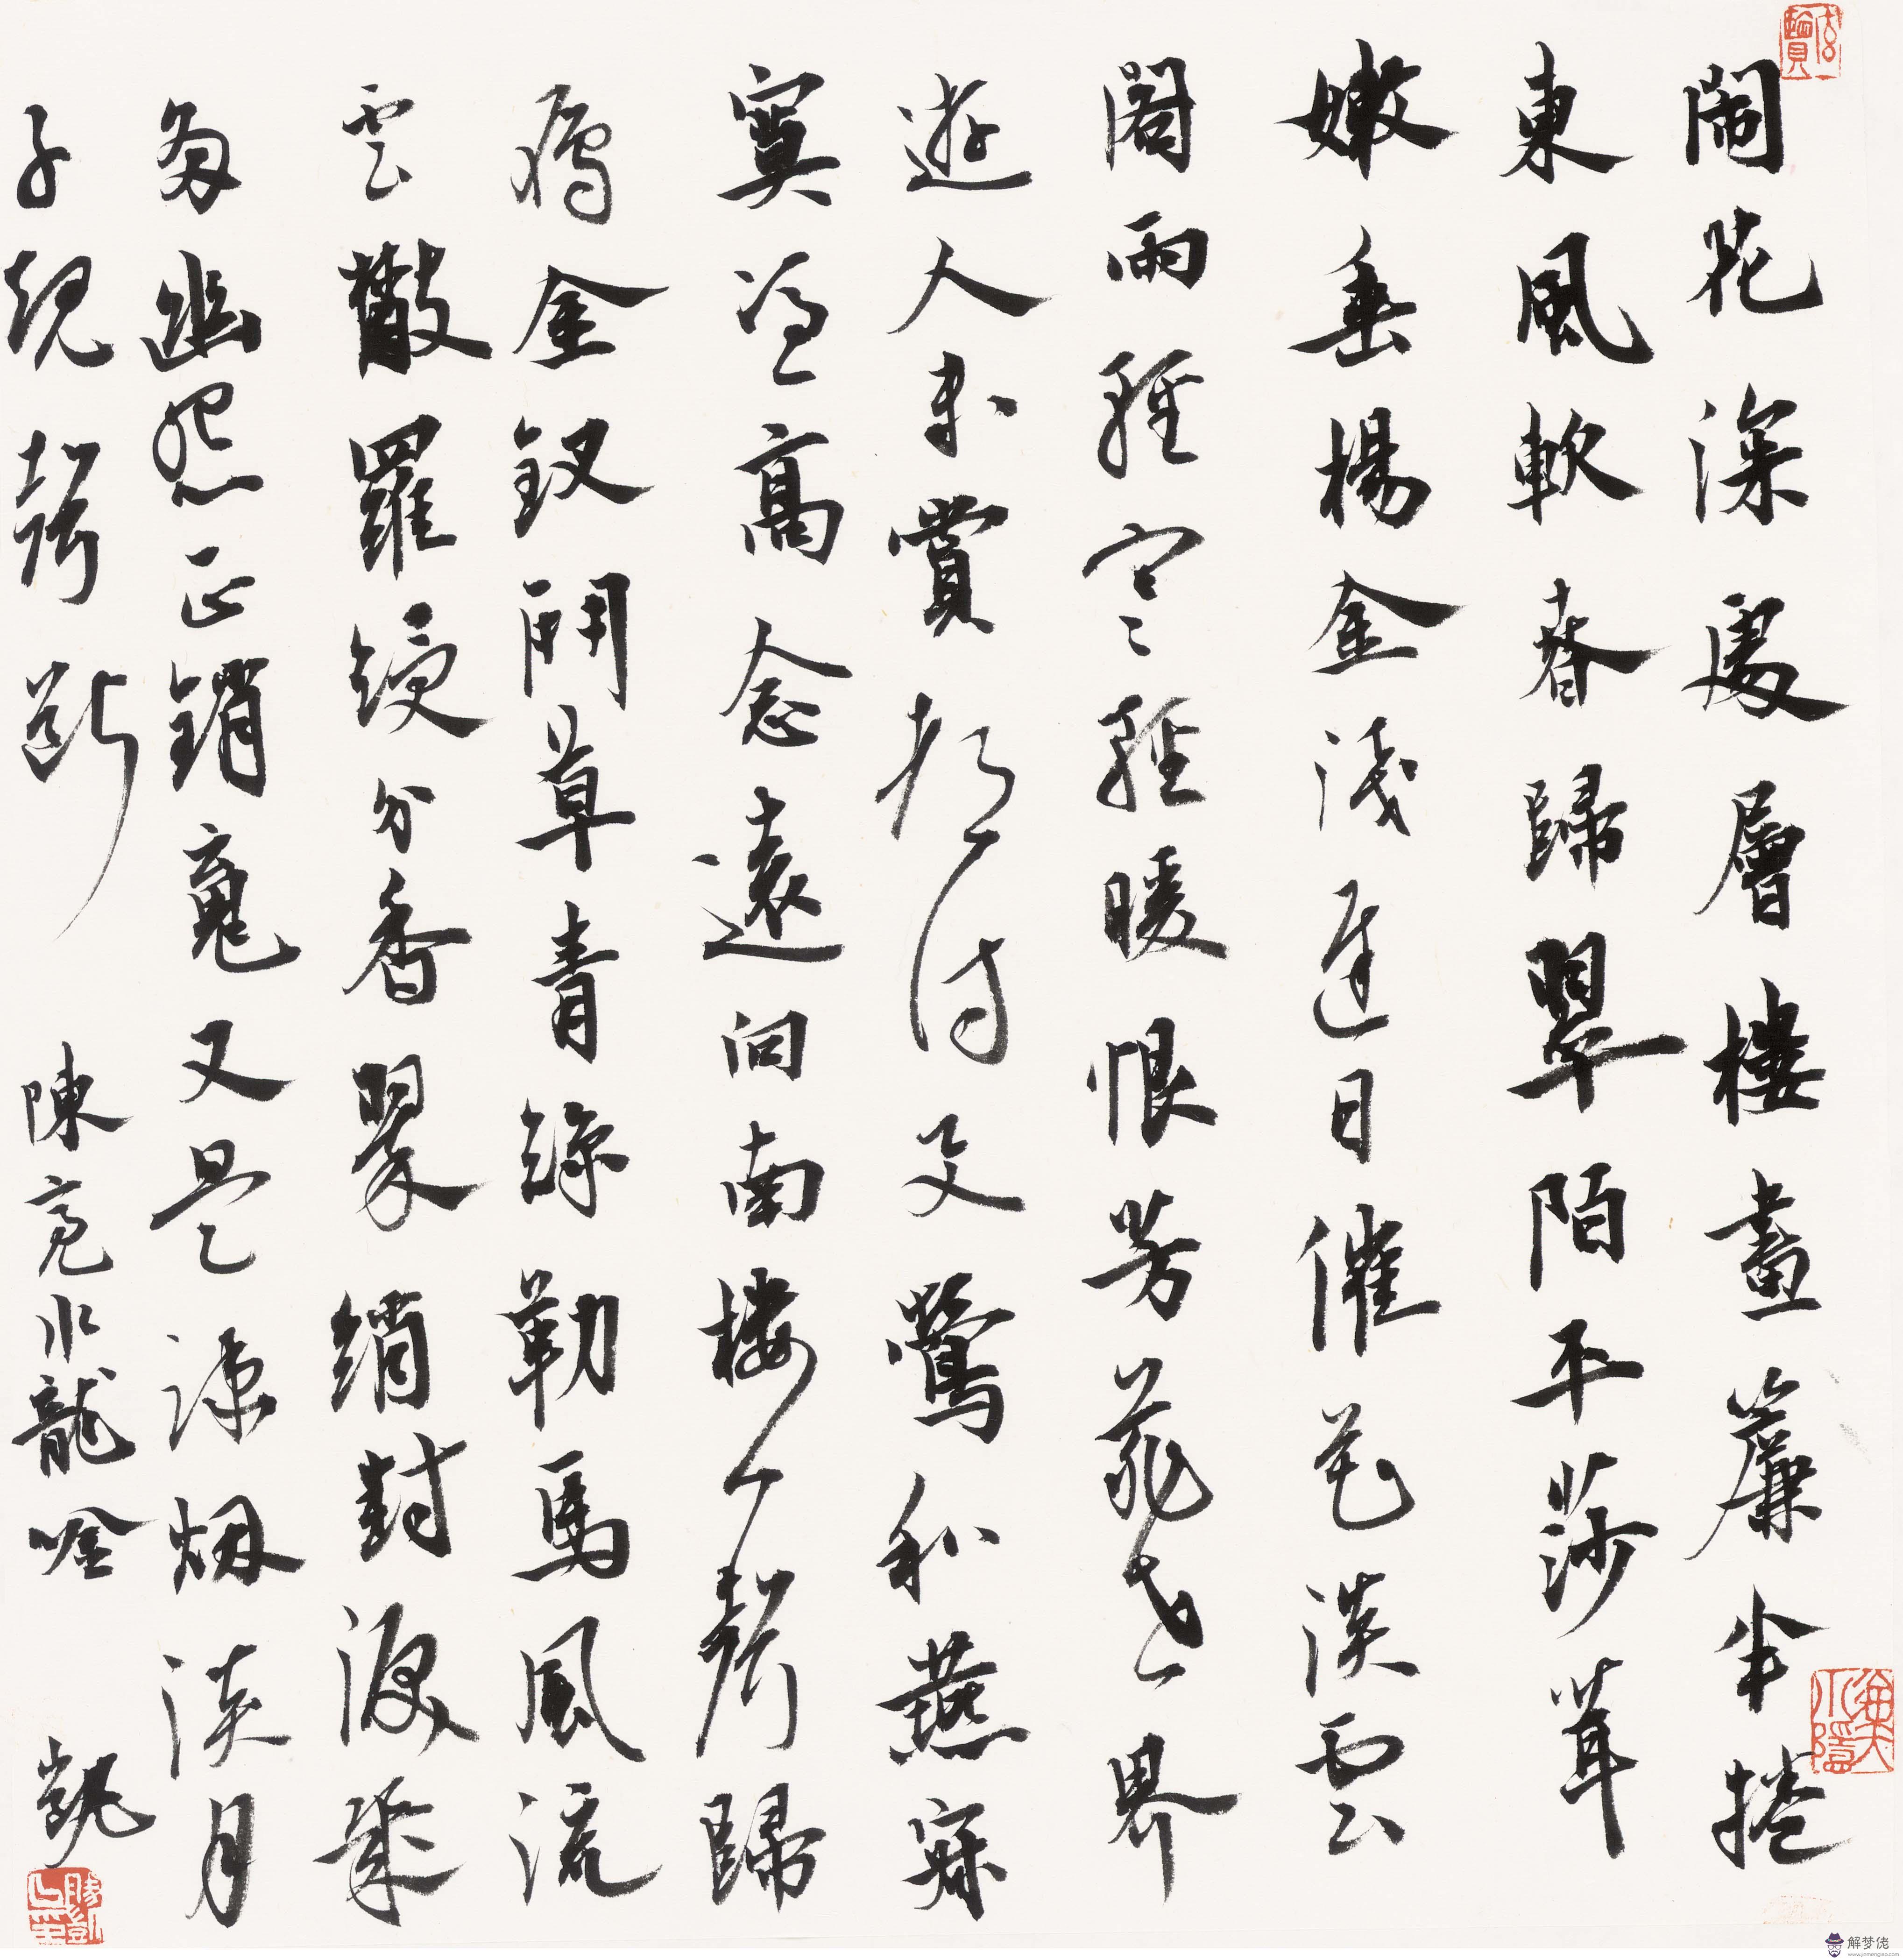 鬧花深處層樓畫簾半捲
東風軟春歸翠陌平莎茸
嫩垂楊金淺遲日催花淡雲
閣雨輕寒輕暖恨芳菲世界
遊人未賞都付與鶯和燕寂
寞憑高念遠向南樓一聲歸
鴈金釵鬥草青絲勒馬風流
雲散羅綬分香翠綃封淚幾
多幽怨正銷魂又是疎烟淡月
子規聲斷 陳亮水龍吟 凱
解梦佬